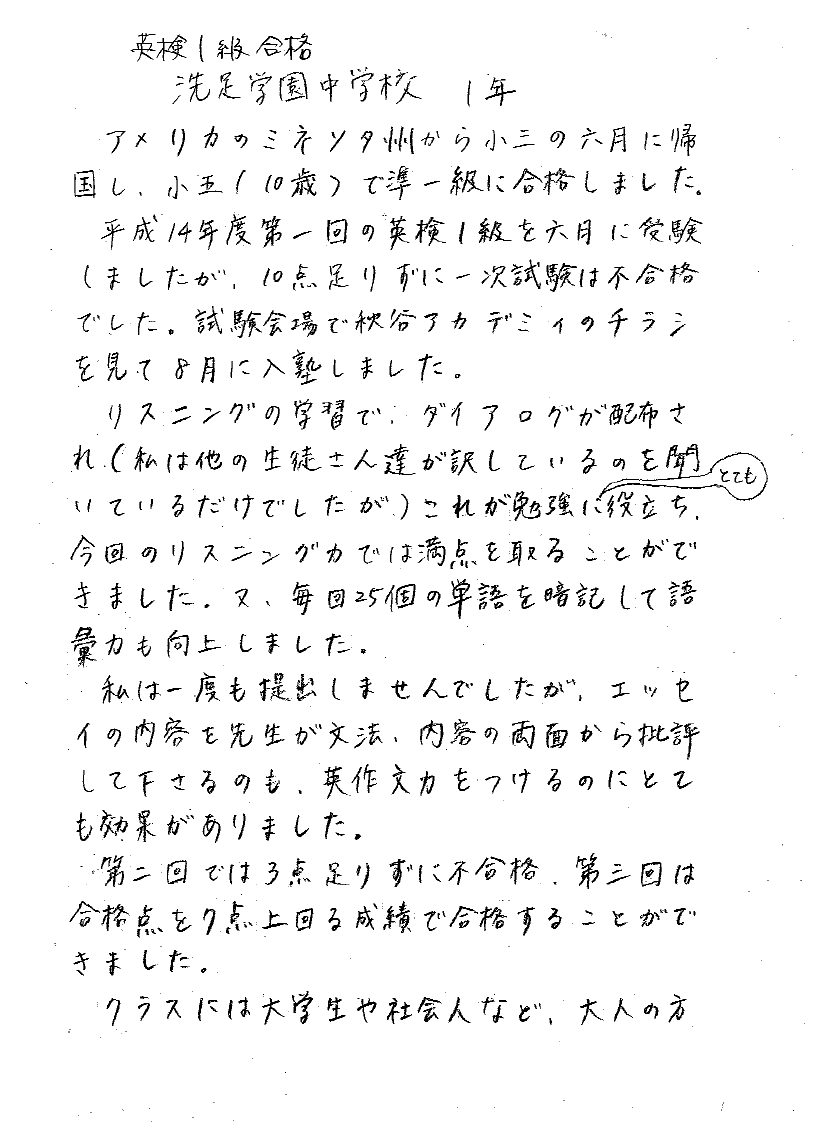 英検1級合格
洗足学園中学校 1年
アメリカのミネソタ州から小三の六月に帰
国し、小五(10歳)で準一級に合格しました。
平成14年度第一回の英検1級を六月に受験
しましたが、10点足りずに一次試験は不合格
でした。試験会場で秋谷アカデミィのチラシ
を見て8月に入塾しました。
リスニングの学習で、ダイアログが配布さ
れ(私は他の生徒さん達が訳しているのを聞
いているだけでしたが)これが勉強にとても役立ち、
今回のリスニング力では満点を取ることがで
きました。又、毎回25個の単語を暗記して語
彙力も向上しました。
私は一度も提出しませんでしたが、エッセ
イの内容を先生が文法、内容の両面から批評
して下さるのも、英作文力をつけるのにとて
も効果がありました。
第二回では3点足りずに不合格、第三回は
合格点を7点上回る成績で合格することがで
きました。
クラスには大学生や社会人など、大人の方